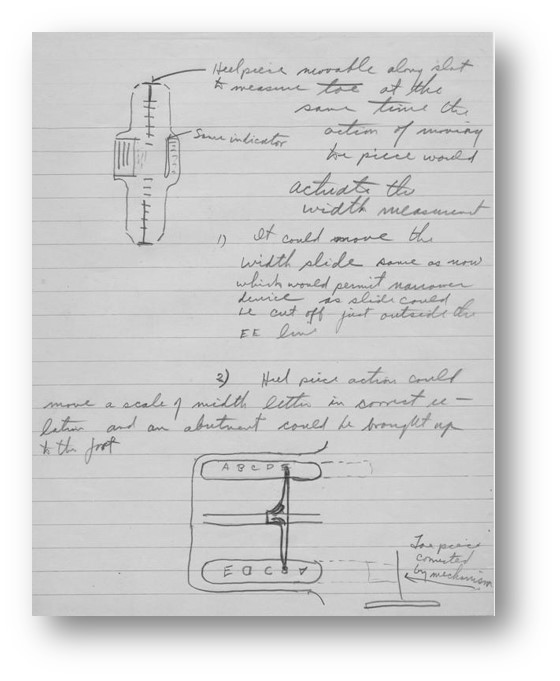 Heel piece movable along slot
to measure toe at the
same time the
action of moving
toe piece would
Same indicator
actuate the
width measurement
1) It could move the
width slide same as now
which would permit narrower
device as slide could
be cut off just outside the
EE line
2) Heel piece action could
move a scale of width letters in correct re-
lation and an abutment could be brought up
to the foot
A B C D E
E D C B A
Toe piece
connected
by mechanism